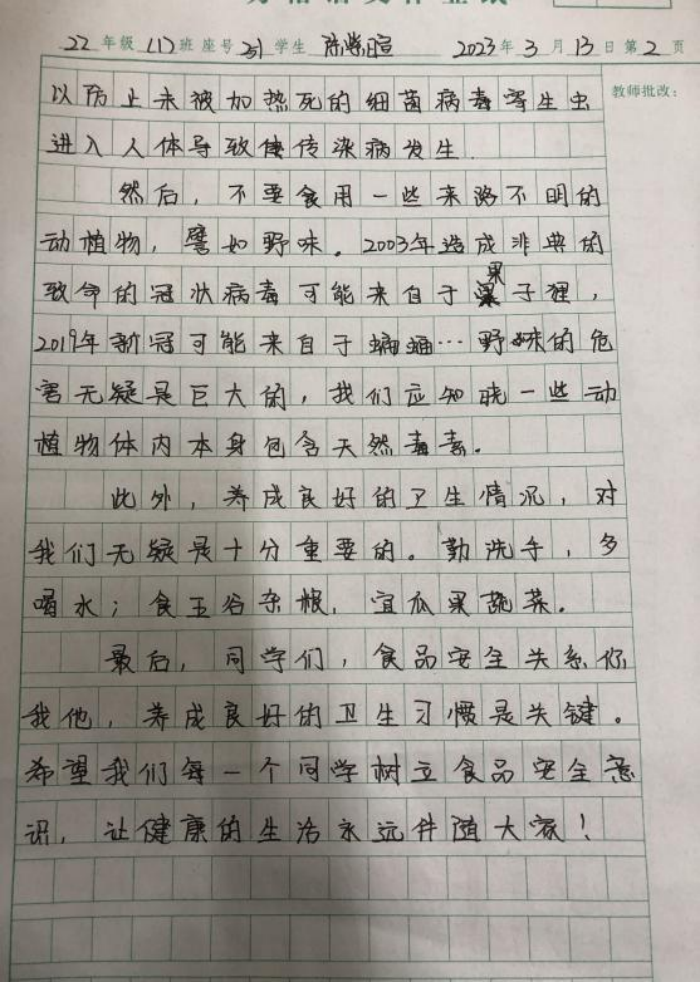 22年级(1)班 座号 学生 2023年3月13日 第2页
教师批改:
以防止未被加热死的细菌病毒寄生虫
进入人体导致使传染病发生.
然后,不要食用一些来路不明的
动植物,譬如野味。2003年造成非典的
致命的冠状病毒可能来自于果子狸,
2019年新冠可能来自于蝙蝠…野味的危
害无疑是巨大的,我们应知晓一些动
植物体内本身包含天然毒素。
此外,养成良好的卫生情况,对
我们无疑是十分重要的。勤洗手,多
喝水;食五谷杂粮,宜瓜果蔬菜。
最后,同学们,食品安全关系你
我他,养成良好的卫生习惯是关键。
希望我们每一个同学树立食品安全意
识,让健康的生活永远伴随大家!